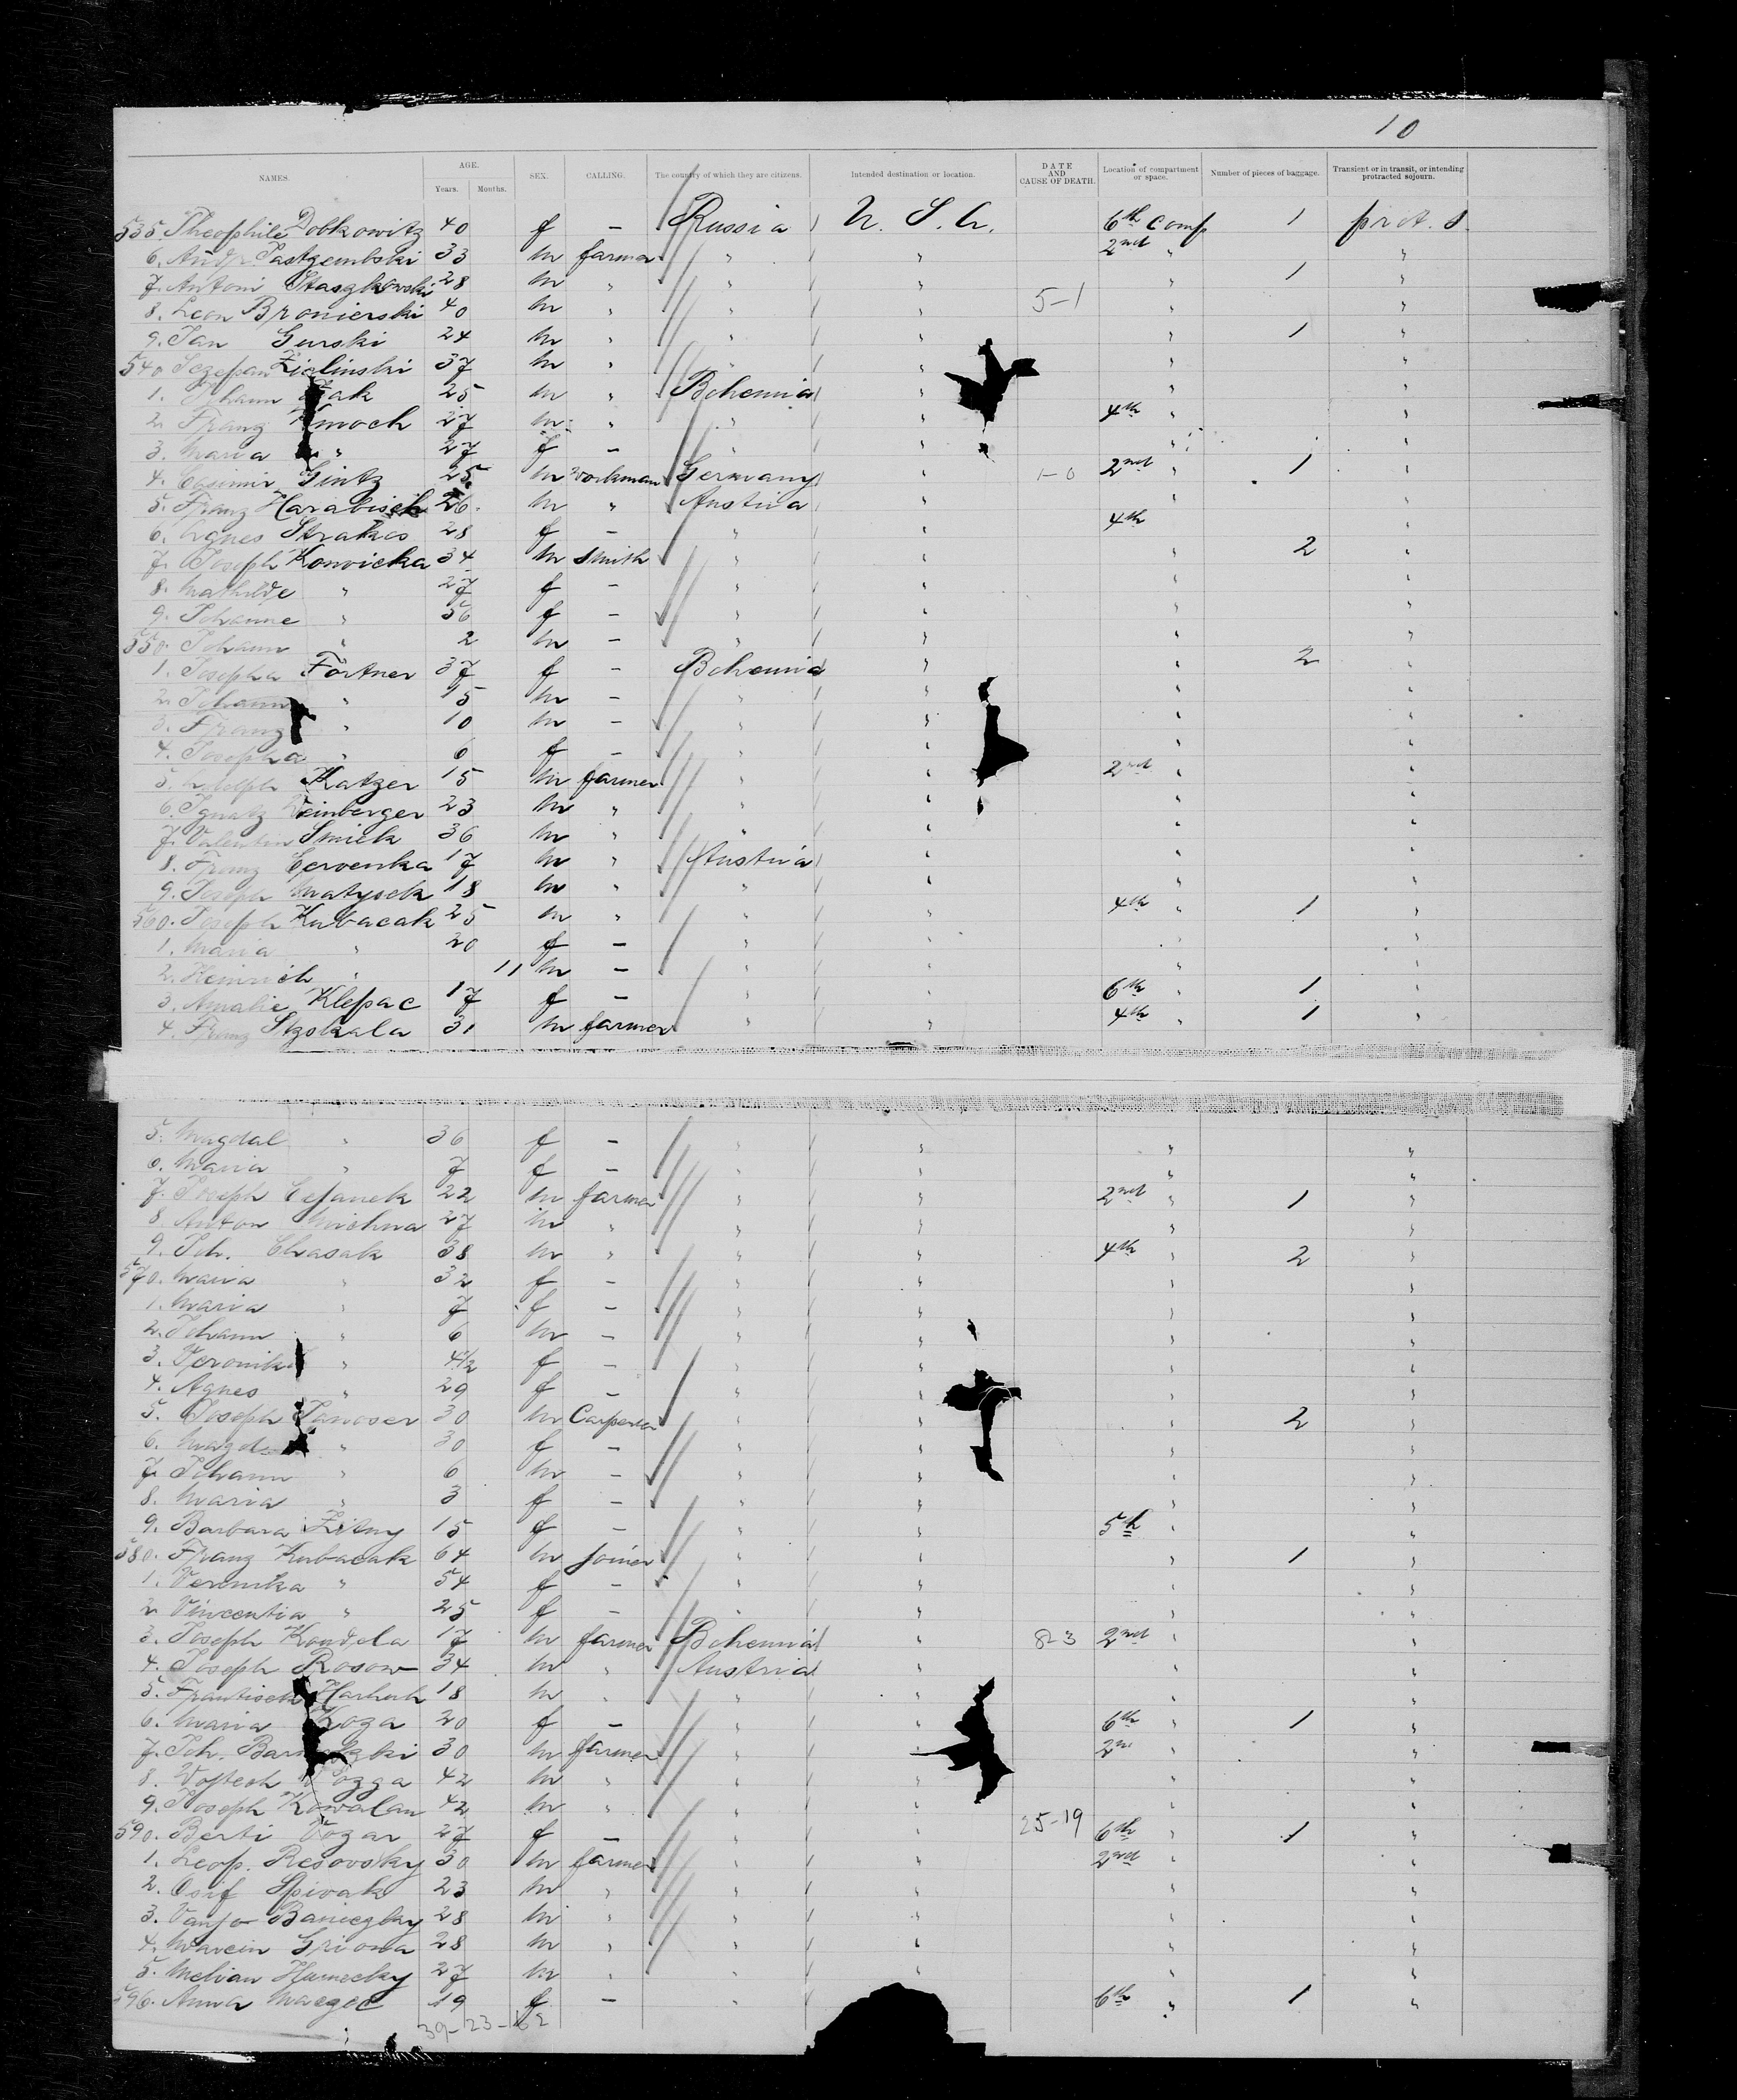 10
NAMES. AGE. Years. Months. SEX. CALLING. The country of which they are citizens. Intended destination or location. DATE AND CAUSE OF DEATH. Location of compartment or space. Number of pieces of baggage. Transient or in transit, or intending protracted sojourn.
535. Theophile Dobkowitz 40 f — Russia U. S. A. 6th comp 1 prot. S.
6. Andr. Pastzembski 33 m farmer " " 2nd " "
7. Antoni Staszkowski 28 m " " " " 1 "
8. Leon Bronierski 40 m " " " 5-1 " "
9. Jan Gurski 24 m " " " " 1 "
540 Sczepan Zielinski 37 m " " " " "
1. Johann Zak 25 m " Bohemia " " "
2. Franz Kmoch 27 m " " " 4th " "
3. Maria " 27 f — " " " "
4. Casimir Gintz 25 m workman Germany " 1-0 2nd " 1 "
5. Franz Harabisch 26 m " Austria " " "
6. Agnes Strakos 28 f — " " 4th "
7. Joseph Konvicka 34 m smith " " " 2 "
8. Mathilde " 27 f — " " " "
9. Johanne " 56 f — " " " "
550. Johann " 2 m — " " " "
1. Josepha Fortner 37 f — Bohemia " " 2 "
2. Johann " 15 m — " " " "
3. Franz " 10 m — " " " "
4. Josepha " 6 f — " " " "
5. Katzer 15 m farmer " " 2nd " "
6. Ignatz Weinberger 23 m " " " " "
7. Valentin Smiek 36 m " " " " "
8. Franz Cervenka 17 m " Austria " " "
9. Joseph Matysek 18 m " " " " "
560. Joseph Kubacak 25 m " " " 4th " 1 "
1. Maria " 20 f — " " " "
2. Heinrich " 11 m — " " " "
3. Amalie Klepac 17 f — " " 6th " 1 "
4. Franz Stzokala 31 m farmer " " 4th " 1 "
5. Magdal " 36 f — " " " "
6. Maria " 7 f — " " " "
7. Joseph Cepanek 22 m farmer " " 2nd " 1 "
8. Anton Michna 27 m " " " " "
9. Joh. Chasak 38 m " " " 4th " 2 "
570. Maria " 32 f — " " " "
1. Maria " 7 f — " " " "
2. Johann " 6 m — " " " "
3. Veronika " 4 1/2 f — " " " "
4. Agnes " 29 f — " " " "
5. Joseph Janoser 30 m Carpenter " " " 2 "
6. Magd " 30 f — " " " "
7. Johann " 6 m — " " " "
8. Maria " 3 f — " " " "
9. Barbara Zitny 15 f — " " 5th " "
580. Franz Kubacak 64 m joiner " " " 1 "
1. Veronika " 54 f — " " " "
2. Vincentia " 25 f — " " " "
3. Joseph Koudela 17 m farmer Bohemia " 8-3 2nd " "
4. Joseph Rosow 34 m " Austria " " "
5. Frantisek Harhuh 18 m " " " " "
6. Maria Koza 20 f — " " 6th " 1 "
7. Joh. 30 m farmer " " 2nd " "
8. Vojtech 42 m " " " " "
9. Joseph Kowalan 42 m " " " " "
590. Berti Vozar 27 f — " " 25-19 6th " 1 "
1. Leop. Resovsky 30 m farmer " " 2nd " "
2. Osif Spivak 23 m " " " " "
3. Banieczky 28 m " " " " "
4. Marcin Griowa 28 m " " " " "
5. Humecky 27 m " " " " "
596. Anna Maczec 19 f — " " 6th " 1 "
39-23-62